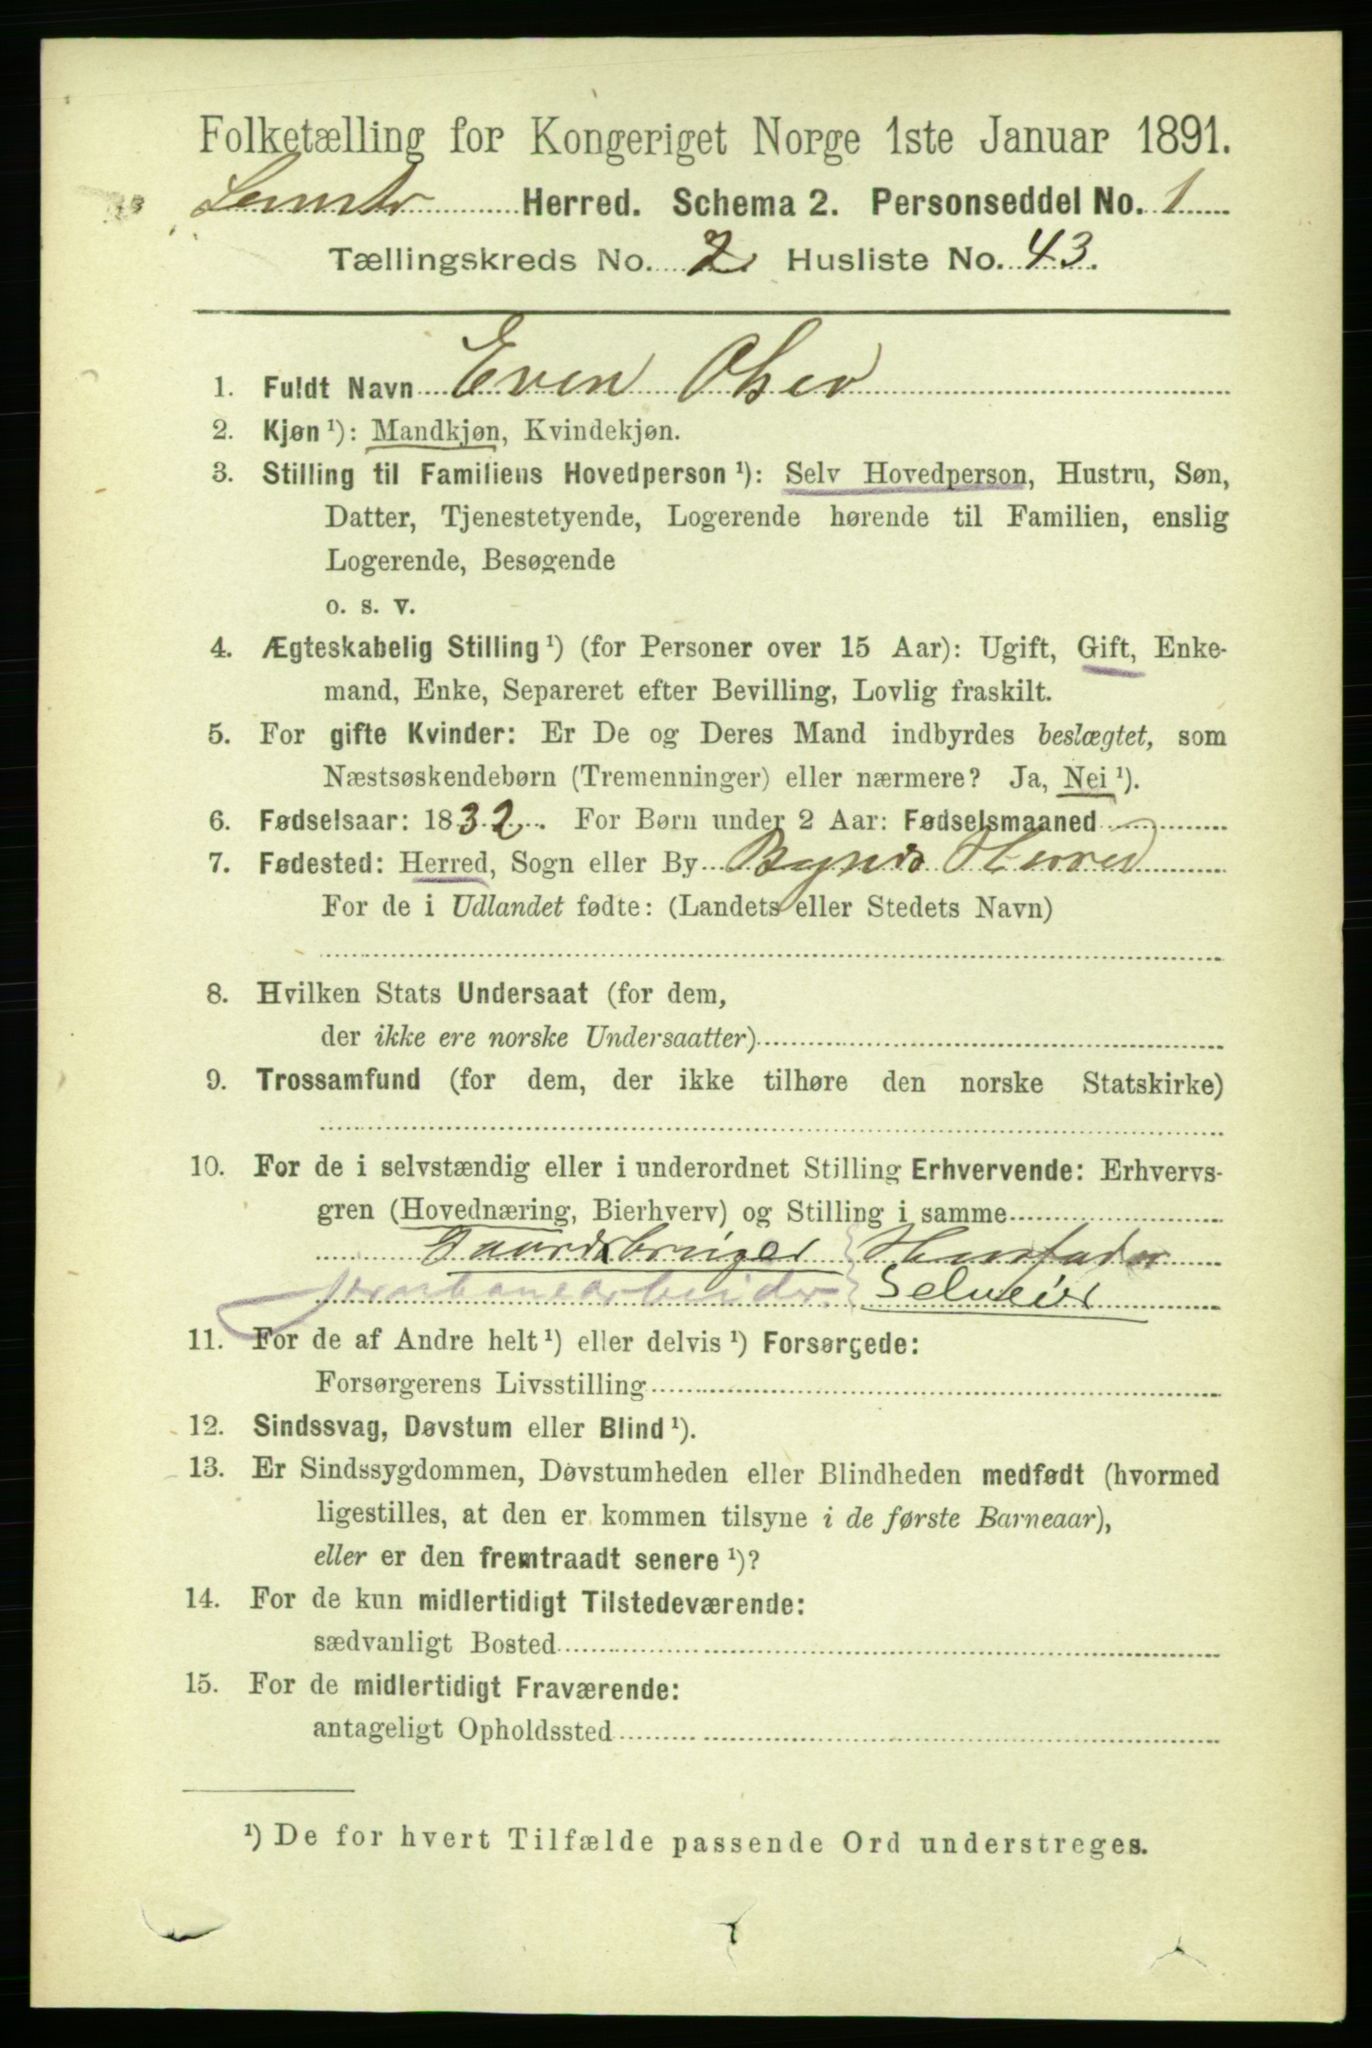 Folketælling for Kongeriget Norge 1ste Januar 1891.
Herred. Schema 2. Personseddel No. 1
Tællingskreds No. 2. Husliste No. 43.
1. Fuldt Navn Even Olsen
2. Kjøn ¹): Mandkjøn, Kvindekjøn.
3. Stilling til Familiens Hovedperson ¹): Selv Hovedperson, Hustru, Søn,
Datter, Tjenestetyende, Logerende hørende til Familien, enslig
Logerende, Besøgende
o. s. v.
4. Ægteskabelig Stilling ¹) (for Personer over 15 Aar): Ugift, Gift, Enke-
mand, Enke, Separeret efter Bevilling, Lovlig fraskilt.
5. For gifte Kvinder: Er De og Deres Mand indbyrdes beslægtet, som
Næstsøskendebørn (Tremenninger) eller nærmere? Ja, Nei ¹).
6. Fødselsaar: 1832. For Børn under 2 Aar: Fødselsmaaned
7. Fødested: Herred, Sogn eller By Herred
For de i Udlandet fødte: (Landets eller Stedets Navn)
8. Hvilken Stats Undersaat (for dem,
der ikke ere norske Undersaatter)
9. Trossamfund (for dem, der ikke tilhøre den norske Statskirke)
10. For de i selvstændig eller i underordnet Stilling Erhvervende: Erhvervs-
gren (Hovednæring, Bierhverv) og Stilling i samme
Gaardsbruger Husfader
Jernbanearbeider. Selveier
11. For de af Andre helt ¹) eller delvis ¹) Forsørgede:
Forsørgerens Livsstilling
12. Sindssvag, Døvstum eller Blind ¹).
13. Er Sindssygdommen, Døvstumheden eller Blindheden medfødt (hvormed
ligestilles, at den er kommen tilsyne i de første Barneaar),
eller er den fremtraadt senere ¹)?
14. For de kun midlertidigt Tilstedeværende:
sædvanligt Bosted
15. For de midlertidigt Fraværende:
antageligt Opholdssted
¹) De for hvert Tilfælde passende Ord understreges.